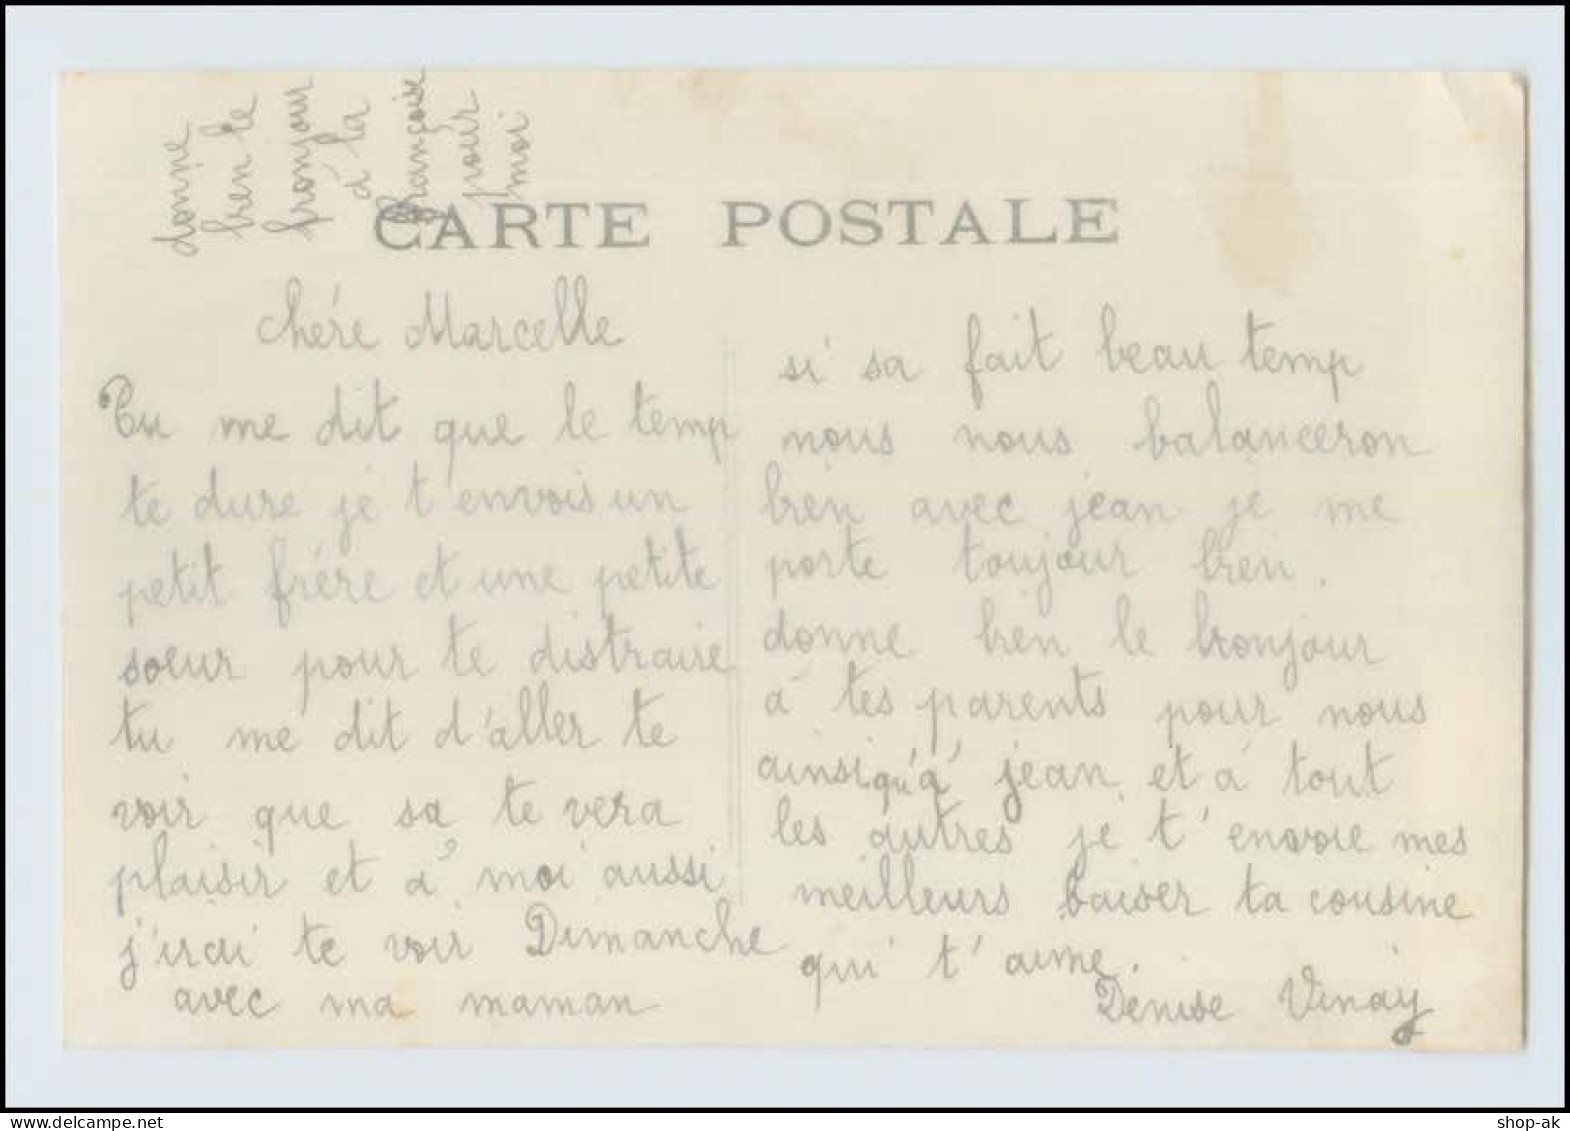 donne
bien le
bonjour
á la
françoise
pour
moi
CARTE POSTALE
chére Marcelle
Tu me dit que le temp
te dure je t'envois un
petit frére et une petite
soeur pour te distraire
tu me dit d'aller te
voir que sa te vera
plaisir et á moi aussi
j'irai te voir Dimanche
avec ma maman
si sa fait beau temp
nous nous balanceron
bien avec jean je me
porte toujour bien.
donne bien le bonjour
á tes parents pour nous
ainsi qu'á jean et á tout
les autres je t'envoie mes
meilleurs baiser ta cousine
qui t'aime.
Denise Vinay
shop-ak